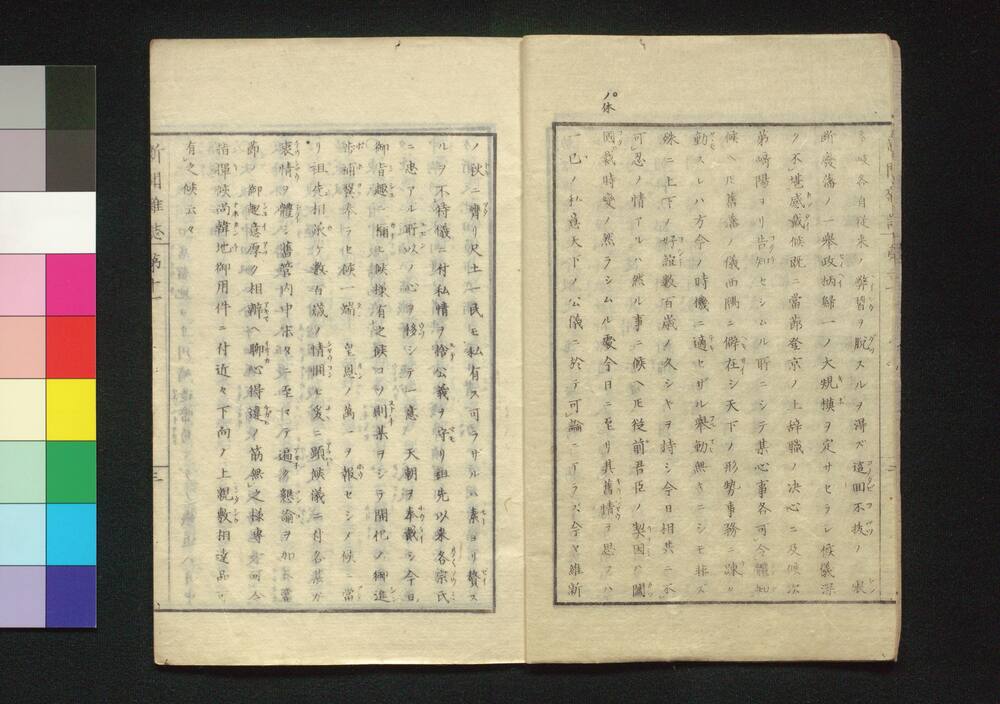 多岐各自従来ノ弊習ヲ脱スルヲ得ズ這回不抜ノ 宸
断廢藩ノ一舉政柄歸一ノ大規模ヲ定サセラレ候儀深
ク不堪感戴候既ニ當節登京ノ上辞職ノ决心ニ及候次
第嶋陽ヨリ告知セシムル所ニシテ某心事各可令體知
候ヘ𪜈舊藩ノ儀西隅ニ僻在シ天下ノ形勢事務ニ疎ク
動スレハ方今ノ時機ニ適セザル舉動無キニシモ非ス
殊ニ上下ノ好誼數百歳ノ久シキヲ持シ今日相共ニ不
可忍ノ情アルハ然ル事ニ候ヘ𪜈従前君臣ノ契因ヨリ
國裁時變ノ然ラシムル處今日ニ至リ其舊情ヲ思フハ
ノ休
一己ノ私意天下ノ公儀ニ於テ可論ニアラズ今ヤ維新
ノ秋ニ膺リ尺土一民モ私有ス可ラザルハ素ヨリ贅ス
ルヲ不待儀ニ付私情ヲ捨公義ヲ守リ祖先以来各宗氏
ニ忠アル所以ノ心ヲ移シテ一意ノ 天朝ヲ奉戴シ今日
御旨趣ニ桶ヒ候様有之候コソ則某ヲシテ開化ノ御進
歩補翼奉ラセ候一端 皇恩ノ萬一ヲ報セシノ候ニ當
リ祖先相承ケ數百歳ノ情惆モ爰ニ顕候儀ニ付各某カ
衷情ヲ體シ舊管内中末々ニ至マテ遍ク懇諭ヲ加ヘ當
節ノ御趣意厚ク相辨ヘ聊心得違ノ筋無之様専要可令
指揮候尚韓地御用件ニ付近々下向ノ上親敷相達品可
有之候云々
新聞雜誌 第十一 三